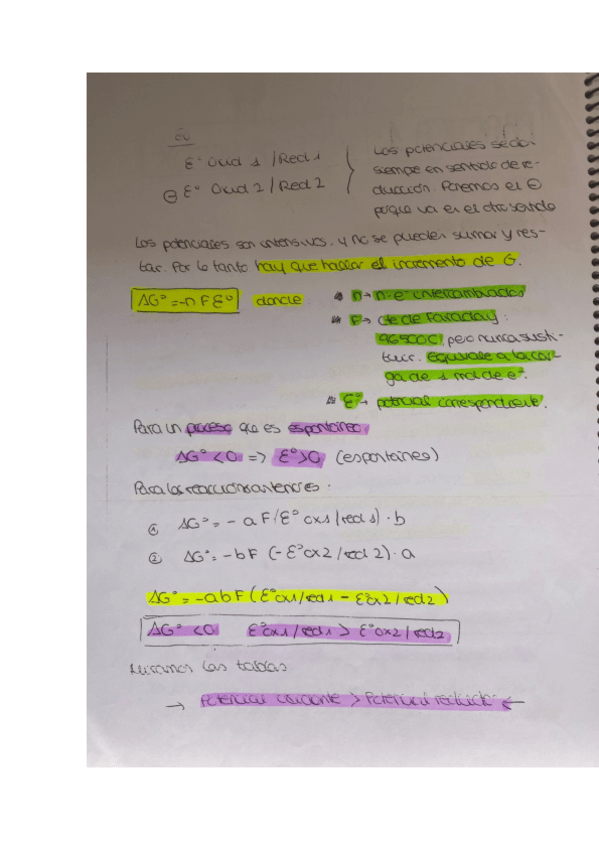 ε° Oxid 1 / Red 1
⊖ ε° Oxid 2 / Red 2
Los potenciales se dan
siempre en sentido de re-
ducción. Ponemos el ⊖
porque va en el otro sentido
Los potenciales son intensivos. y no se pueden sumar y res-
tar. Por lo tanto hay que hallar el incremento de G.
ΔG° = -n F ε° donde:
n → n e⁻ intercambiados
F → cte de Faraday:
96500C pero nunca susti-
tuir. Equivale a la car-
ga de 1 mol de e⁻.
ε° → potencial correspondiente.
Para un proceso que es espontáneo
ΔG° < 0 => ε° > 0 (espontáneo)
Para las reacciones anteriores:
① ΔG° = - a F (ε° ox1 / red 1) · b
② ΔG° = - b F (- ε° ox 2 / red 2) · a
ΔG° = - a b F (ε° ox1 / red 1 - ε° ox2 / red 2)
ΔG° < 0 ε° ox1 / red1 > ε° ox2 / red2
Miramos las tablas
→ Potencial oxidante > Potencial reductor ←